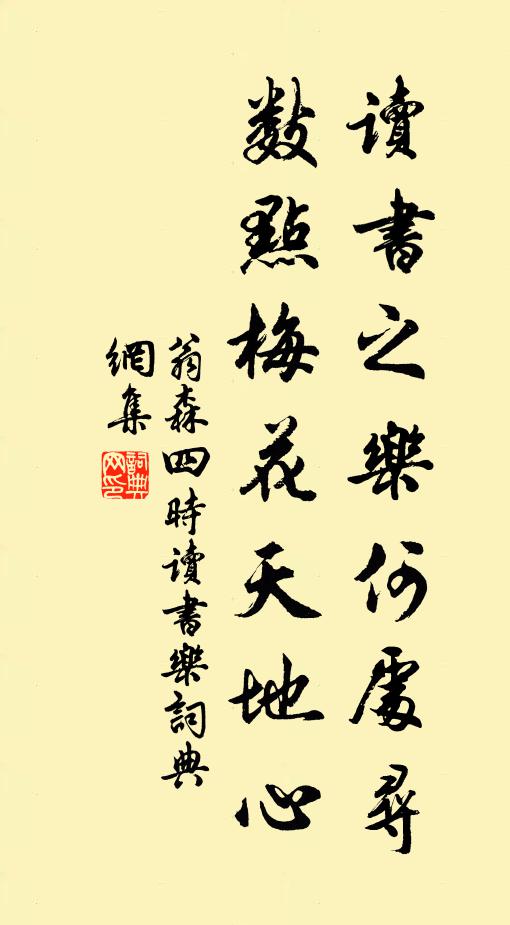 讀書之樂何處尋
數點梅花天地心
翁森四時讀書樂詞典
網集
詞典
网印